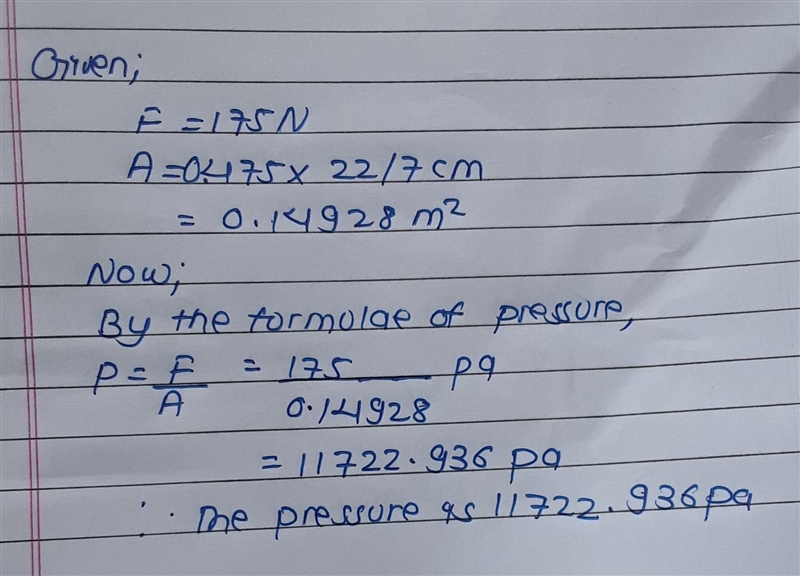 Given;
F = 175N
A = 0.475 x 22/7 cm
= 0.14928 m²
Now;
By the formulae of pressure,
P = F/A = 175/0.14928 pa
= 11722.936 pa
∴ The pressure is 11722.936 pa